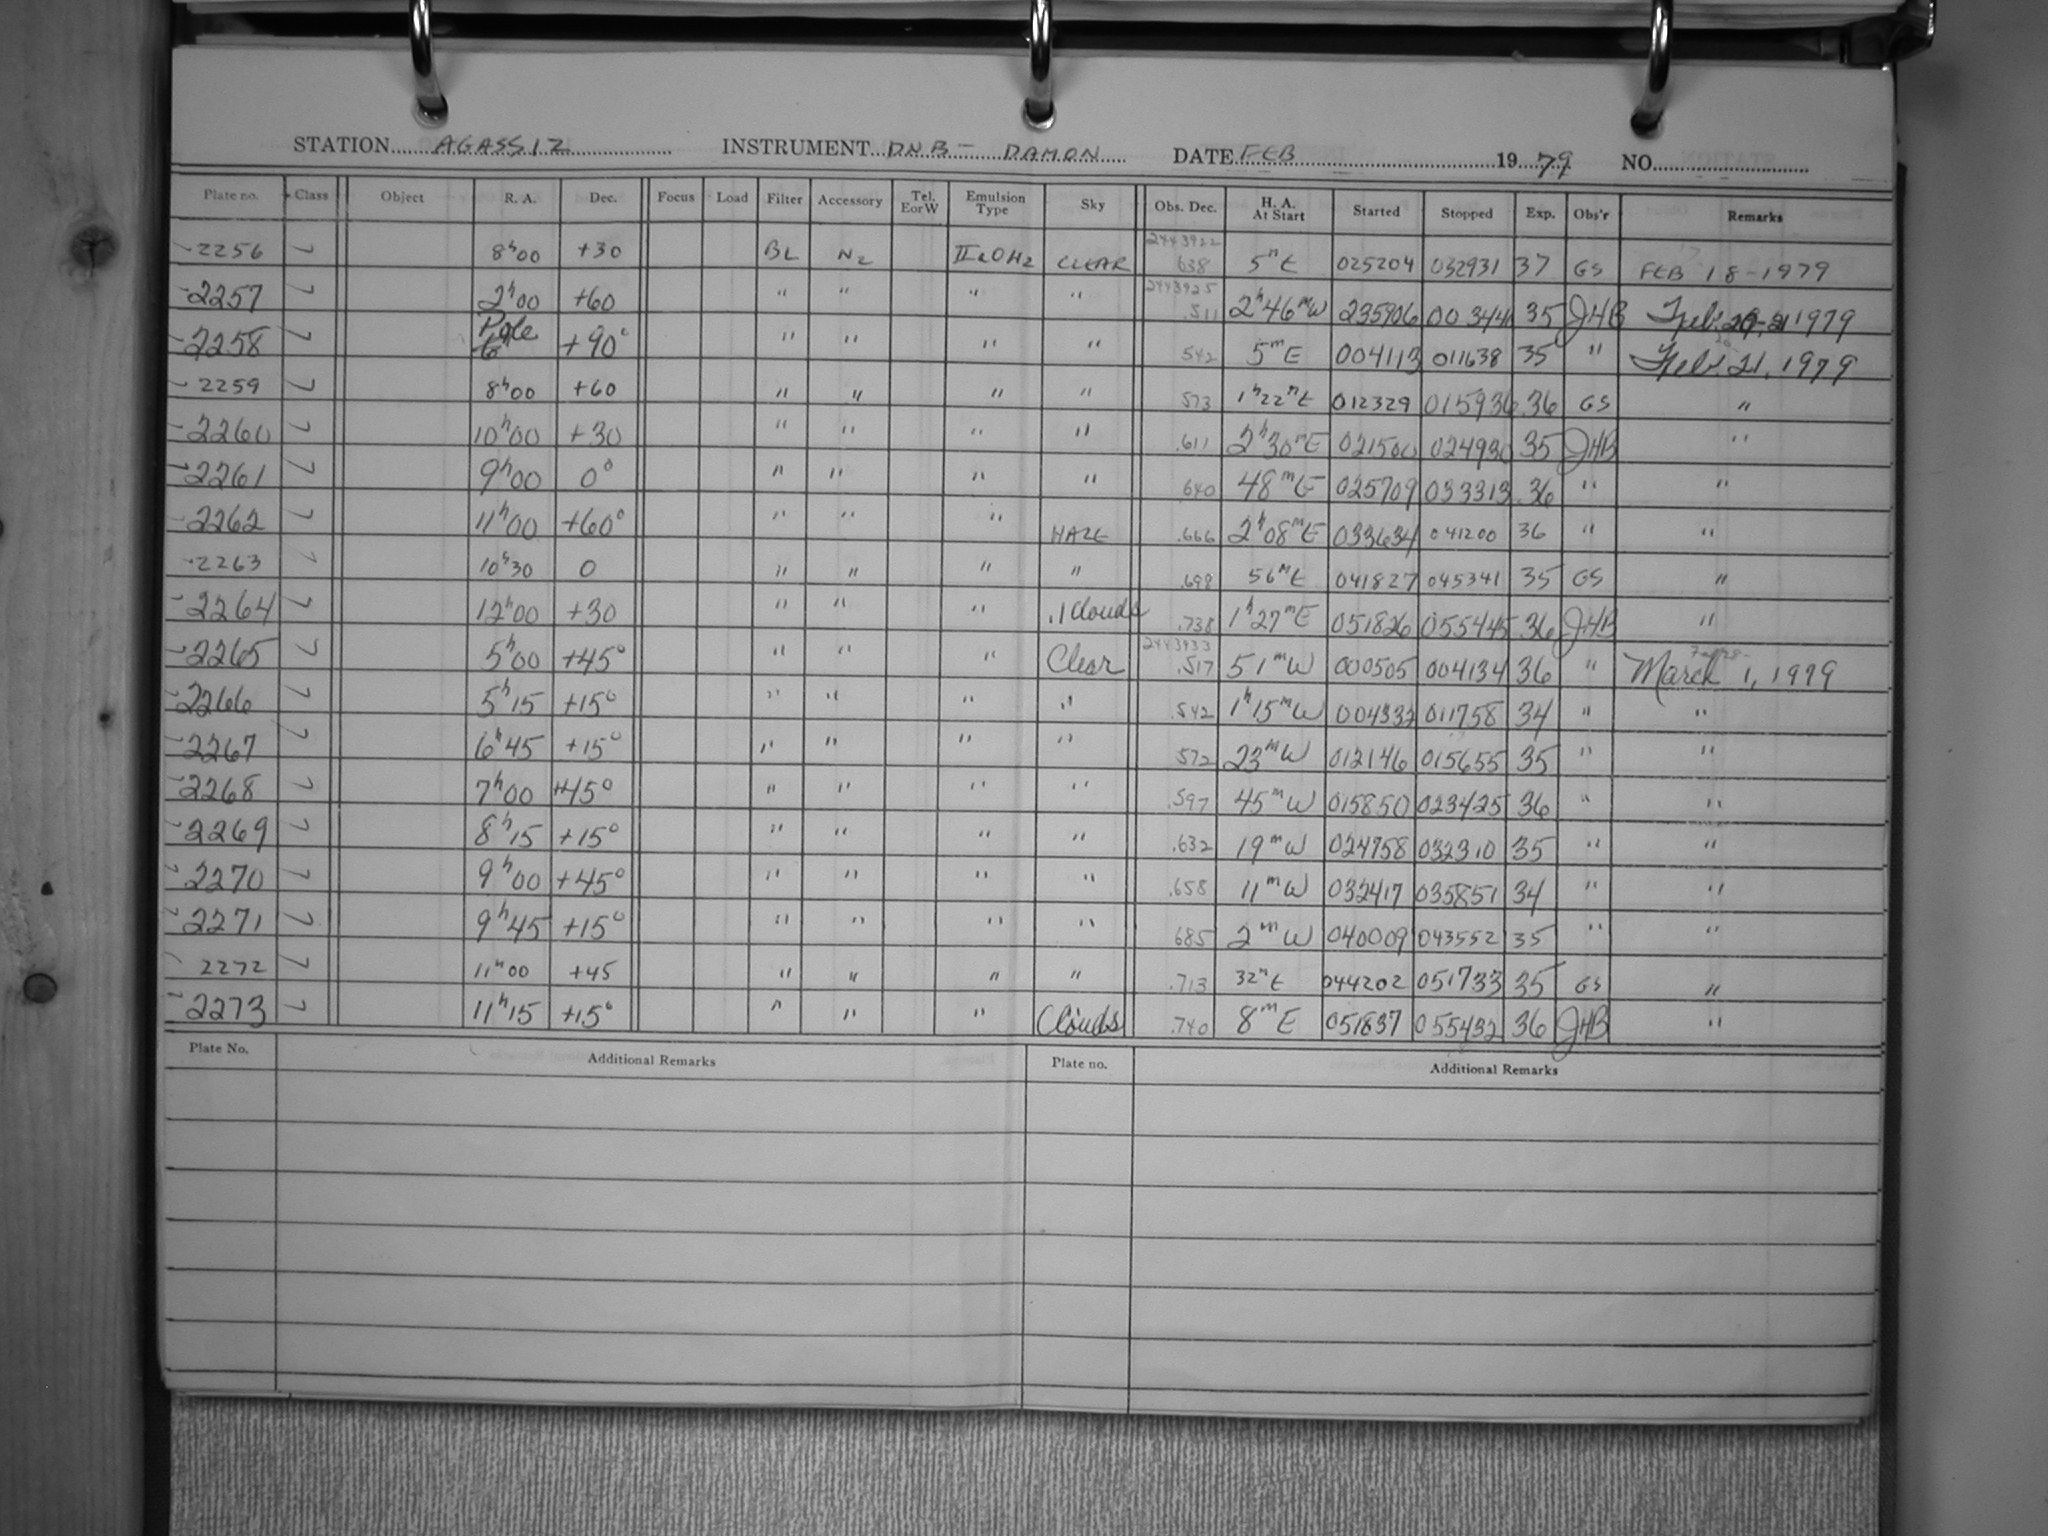 STATION AGASSIZ INSTRUMENT DNB - DAMON DATE FEB 1979 NO.
Plate no. Class Object R. A. Dec. Focus Load Filter Accessory Tel. EorW Emulsion Type Sky Obs. Dec. H. A. At Start Started Stopped Exp. Obs'r Remarks
2256 7 8h00 +30 BL N2 IIaOH2 CLEAR 2443922 638 5m E 025204 032931 37 GS FEB 18-1979
2257 7 2h00 +60 " " " " 2443925 .511 2h46mW 235906 003441 35 JHB Feb. 1979
2258 7 Pole 6h +90° " " " " 542 5mE 004113 011638 35 " Feb. 21, 1979
2259 7 8h00 +60 " " " " 573 1h22mE 012329 015936 36 GS "
2260 7 10h00 +30 " " " " .611 2h30mE 021500 024930 35 JHB "
2261 7 9h00 0° " " " " 640 48mE 025709 033313 36 " "
2262 7 11h00 +60° " " " HAZE .666 2h08mE 033634 041200 36 " "
2263 7 10h30 0 " " " " .698 56mE 041827 045341 35 GS "
2264 7 12h00 +30 " " " .1 Clouds .738 1h27mE 051826 055445 36 JHB "
2265 7 5h00 +45° " " " Clear 2443933 .517 51mW 000505 004134 36 " March 1, 1979
2266 7 5h15 +15° " " " " .542 1h15mW 004332 011758 34 " "
2267 7 6h45 +15° " " " " 572 23mW 012146 015655 35 " "
2268 7 7h00 +45° " " " " .597 45mW 015850 023425 36 " "
2269 7 8h15 +15° " " " " .632 19mW 024758 032310 35 " "
2270 7 9h00 +45° " " " " .658 11mW 032417 035851 34 " "
2271 7 9h45 +15° " " " " 685 2mW 040009 043552 35 " "
2272 7 11h00 +45 " " " " .713 32mE 044202 051733 35 GS "
2273 7 11h15 +15° " " " Clouds .740 8mE 051837 055432 36 JHB "
Plate No. Additional Remarks Plate no. Additional Remarks